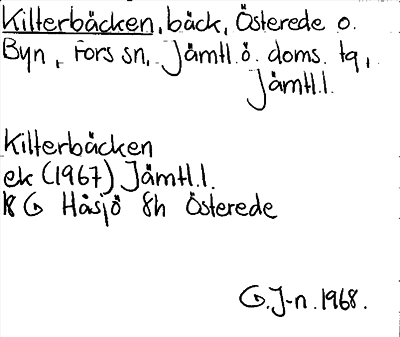 Kilterbäcken, bäck, Österede o.
Byn, Fors sn, Jämtl.ö. doms. tg,
Jämtl.l.
Kilterbäcken
ek (1967) Jämtl.l.
18 G Håsjö 8h Österede
G.J-n.1968.